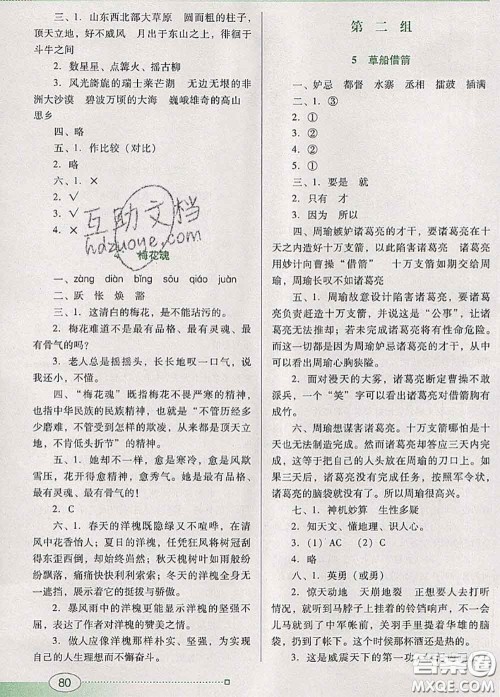 三、1. 山东西北部大草原　圆而粗的柱子，
顶天立地　好不威风　月亮出于东山之上，徘徊于
斗牛之间
2. 数星星、点篝火、摇古柳
3. 风光旖旎的瑞士莱芒湖　无边无垠的非
洲大沙漠　碧波万顷的大海　巍峨雄奇的高山
思乡
四、略
五、1. 作比较（对比）
2. 略
六、1. ×
2. √
3. √
4. ×
互助文档
hdzuoye.com
梅花魂
一、zàng　diàn　bīng　sǒu　qiáo　juàn
二、跃　怅　焕　豁
三、1. 这清白的梅花，是不能玷污的。
2. 梅花难道不是最有品格、最有灵魂、最
有骨气的吗？
3. 老人总是摇摇头，长叹一口气，说我还
小，不懂。
四、“梅花魂”既指梅花不畏严寒的精神，也
指中华民族的民族精神，也就是“不管历经多
少磨难，不管受到怎样的欺凌，从来都是顶天立
地，不肯低头折节”的精神。
五、1. 她却不一样，愈是寒冷，愈是风欺
雪压，花开得愈精神，愈秀气。她是最有品格、
最有灵魂、最有骨气的！
2. C
六、1. 春天的洋槐既隐绿又不喧哗，在清
风中花香怡人；夏日的洋槐，任凭狂风将树冠刮
得东歪西倒，却挺住了树干；秋天槐树叶如雨般
飘落，痛痛快快利利索索；冬天的洋槐，孑然一
身无遮挡，展示着它的挺拔与骄傲。
2. 暴风雨中的洋槐更显示出它的坚强不
屈，表现作者对洋槐的赞美之情。
3. 做人应像洋槐那样朴实、坚强，为实现
自己的人生理想而不懈奋斗。
80
第二组
5　草船借箭
一、妒忌　都督　水寨　丞相　擂鼓　插满
二、1. ③
2. ①
3. ①
4. ②
5. ①
三、1. 要是　就
2. 只有　才
3. 因为　所以
四、周瑜嫉妒诸葛亮的才干，要诸葛亮在十
天之内造好十万支箭，以此陷害诸葛亮　诸葛亮
用妙计向曹操“借箭”　十万支箭如数交给周瑜
周瑜自叹不如
五、1. 周瑜故意设计陷害诸葛亮，要诸葛亮
在十天内造出十万支箭，并说这是“公事”，让诸
葛亮不能推却，若未完成诸葛亮将有性命危险。
而这一切都是因为周瑜妒忌诸葛亮的才干，从中
可以看出周瑜心胸狭隘。
2. 面对漫天的大雾，诸葛亮断定曹操不敢
派兵，一个“笑”字可以看出诸葛亮对借箭胸有成
竹。
六、周瑜想谋害诸葛亮。十万支箭哪怕是十
天也无法制造完成。然而诸葛亮却答应三天内完
成，这等于把自己的人头放在周瑜的刀口下。如
果三天后，诸葛亮没有完成任务，按照军令状，
诸葛亮的脑袋就没有了。所以周瑜很高兴。
七、1. 神机妙算　生性多疑
2. 知天文、懂地理、识人心。
3.（1）AC　（2）C
4. 略
八、1. 英勇（或勇）
2. 惊天动地　天崩地裂　正要派人去打听
情况，就听到马脖子上挂着的铃铛响声，不一会
儿马来到了中军帐前。关羽用手提着华雄的脑袋
扔在地上，关羽喝酒的时候那杯酒还是热的。
3. 这是威震天下的第一功
答案圈
MXQE.COM